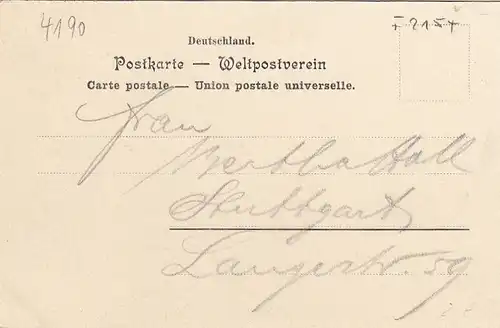 4190
F 2154
Deutschland.
Postkarte — Weltpostverein
Carte postale — Union postale universelle.
Frau
Bertha Hall
Stuttgart
Langestr. 59